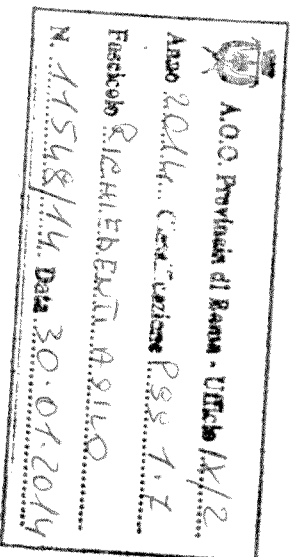 A.O.O. Provincia di Roma - Ufficio IX/2
Anno 2014 Classificazione PSS 1.7
Fascicolo RICHIEDENTI ASILO
N. 11548/14 Data 30.01.2014